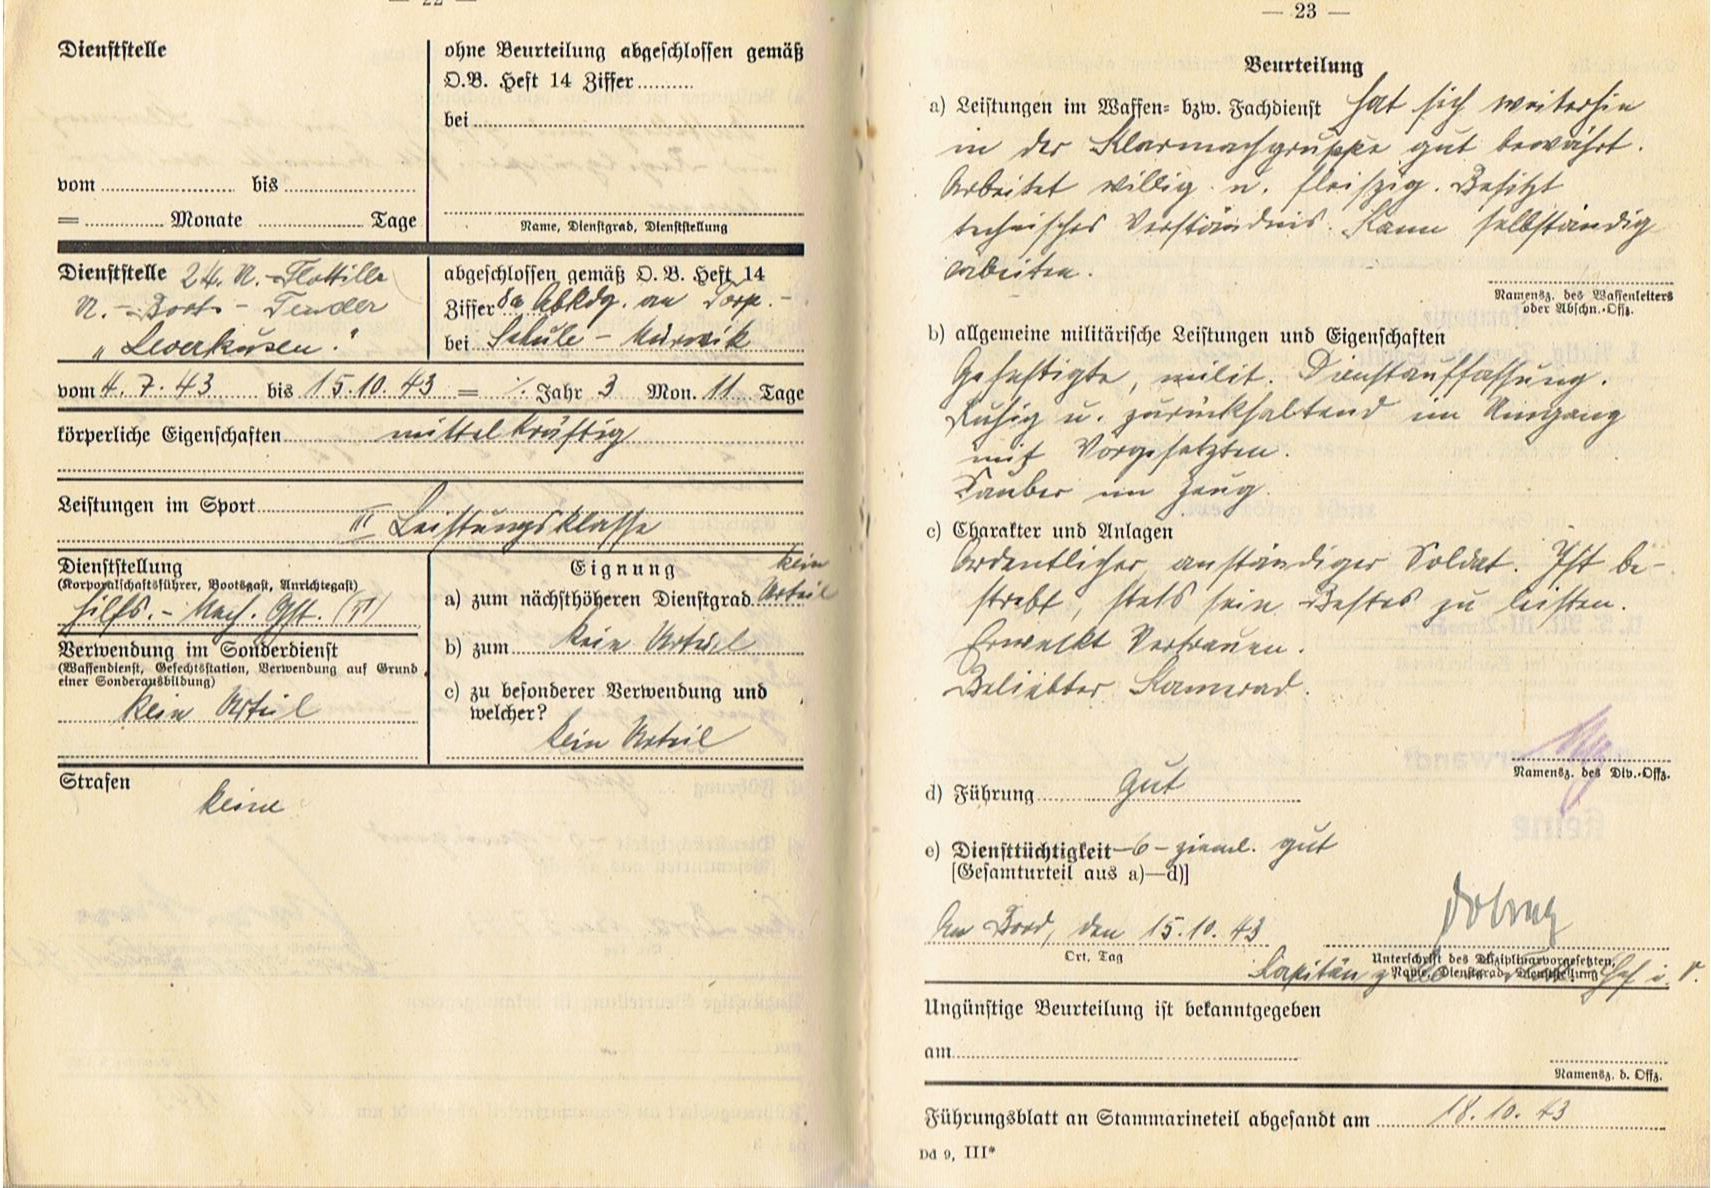 — 22 —
Dienststelle
vom ........ bis ........
= ........ Monate ........ Tage
ohne Beurteilung abgeschlossen gemäß
O.B. Heft 14 Ziffer ........
bei ........
Name, Dienstgrad, Dienststellung
Dienststelle 24. U.-Flottille
U.-Boots-Tender
„Leverkusen."
abgeschlossen gemäß O. B. Heft 14
Ziffer 8a Abkdg. an Torp.-
bei Schule - Mürwik
vom 4.7.43 bis 15.10.43 = ./. Jahr 3 Mon. 11 Tage
körperliche Eigenschaften mittelkräftig
Leistungen im Sport
III Leistungsklasse
Dienststellung
(Korporalschaftsführer, Bootsgast, Anrichtegast)
Hilfs.-Mech. Gst. (T)
Verwendung im Sonderdienst
(Waffendienst, Gefechtsstation, Verwendung auf Grund
einer Sonderausbildung)
kein Urteil
Eignung
a) zum nächsthöheren Dienstgrad kein Urteil
b) zum kein Urteil
c) zu besonderer Verwendung und
welcher?
kein Urteil
Strafen
keine
— 23 —
Beurteilung
a) Leistungen im Waffen= bzw. Fachdienst Hat sich weiterhin
in der Klarmachgruppe gut bewährt.
Arbeitet willig u. fleißig. Besitzt
technisches Verständnis. Kann selbständig
arbeiten.
Namensz. des Waffenleiters
oder Abschn.-Offz.
b) allgemeine militärische Leistungen und Eigenschaften
Gefestigte, milit. Dienstauffassung.
Ruhig u. zurückhaltend im Umgang
mit Vorgesetzten.
Sauber im Zeug.
c) Charakter und Anlagen
Ordentlicher, anständiger Soldat. Ist be-
strebt, stets sein Bestes zu leisten.
Erweckt Vertrauen.
Beliebter Kamerad.
Namensz. des Div.-Offz.
d) Führung gut
e) Diensttüchtigkeit -6- zieml. gut
[Gesamturteil aus a)—d)]
An Bord, den 15.10.43
Ort, Tag
Unterschrift des Disziplinarvorgesetzten,
Name, Dienstgrad, Dienststellung
Kapitän z. See
Ungünstige Beurteilung ist bekanntgegeben
am ........
Namensz. d. Offz.
Führungsblatt an Stammarineteil abgesandt am 18.10.43
Dd 9, III*